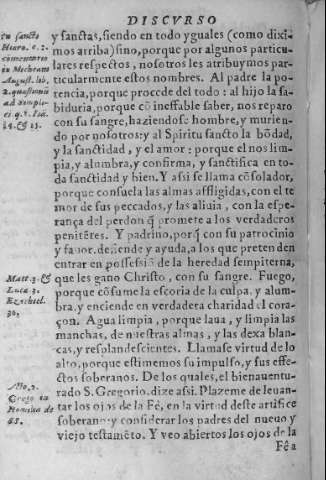 DISCVRSO
y sanctas, siendo en todo yguales (como dixi-
mos arriba) sino, porque por algunos particu-
lares respectos, nosotros les atribuymos par-
ticularmente estos nombres. Al padre la po-
tencia, porque procede del todo: al hijo la sa-
biduria, porque cō ineffable saber, nos reparo
con su sangre, haziendose hombre, y murien-
do por nosotros: y al Spiritu sancto la bōdad,
y la sanctidad, y el amor: porque el nos lim-
pia, y alumbra, y confirma, y sanctifica en to-
da sanctidad y bien. Y assi se llama cōsolador,
porque consuela las almas affligidas, con el te
mor de sus peccados, y las aliuia, con la espe-
rança del perdon q̃ promete a los verdaderos
penitētes. Y padrino, porq̃ con su patrocinio
y fauor, defiende y ayuda, a los que pretenden
entrar en possessiō de la heredad sempiterna,
que les gano Christo, con su sangre. Fuego,
porque cōsume la escoria de la culpa, y alum-
bra, y enciende en verdadera charidad el cora-
çon. Agua limpia, porque laua, y limpia las
manchas, de nuestras almas, y las dexa blan-
cas, y resplandescientes. Llamase virtud de lo
alto, porque estimemos su impulso, y sus effe-
ctos soberanos. De los quales, el bienauentu-
rado S. Gregorio, dize assi. Plazeme de leuan-
tar los ojos de la Fè, en la virtud deste artifice
soberano y considerar los padres del nueuo y
viejo testamēto. Y veo abiertos los ojos de la
Fè a
su sancto
Hiero. c. 2.
comentarios
in Micheam
August. lib.
2. quæstionū
ad Simpli-
14. & 15.
Matt. 3. &
Luca 3.
Ezechiel.
36.
Acto. 2.